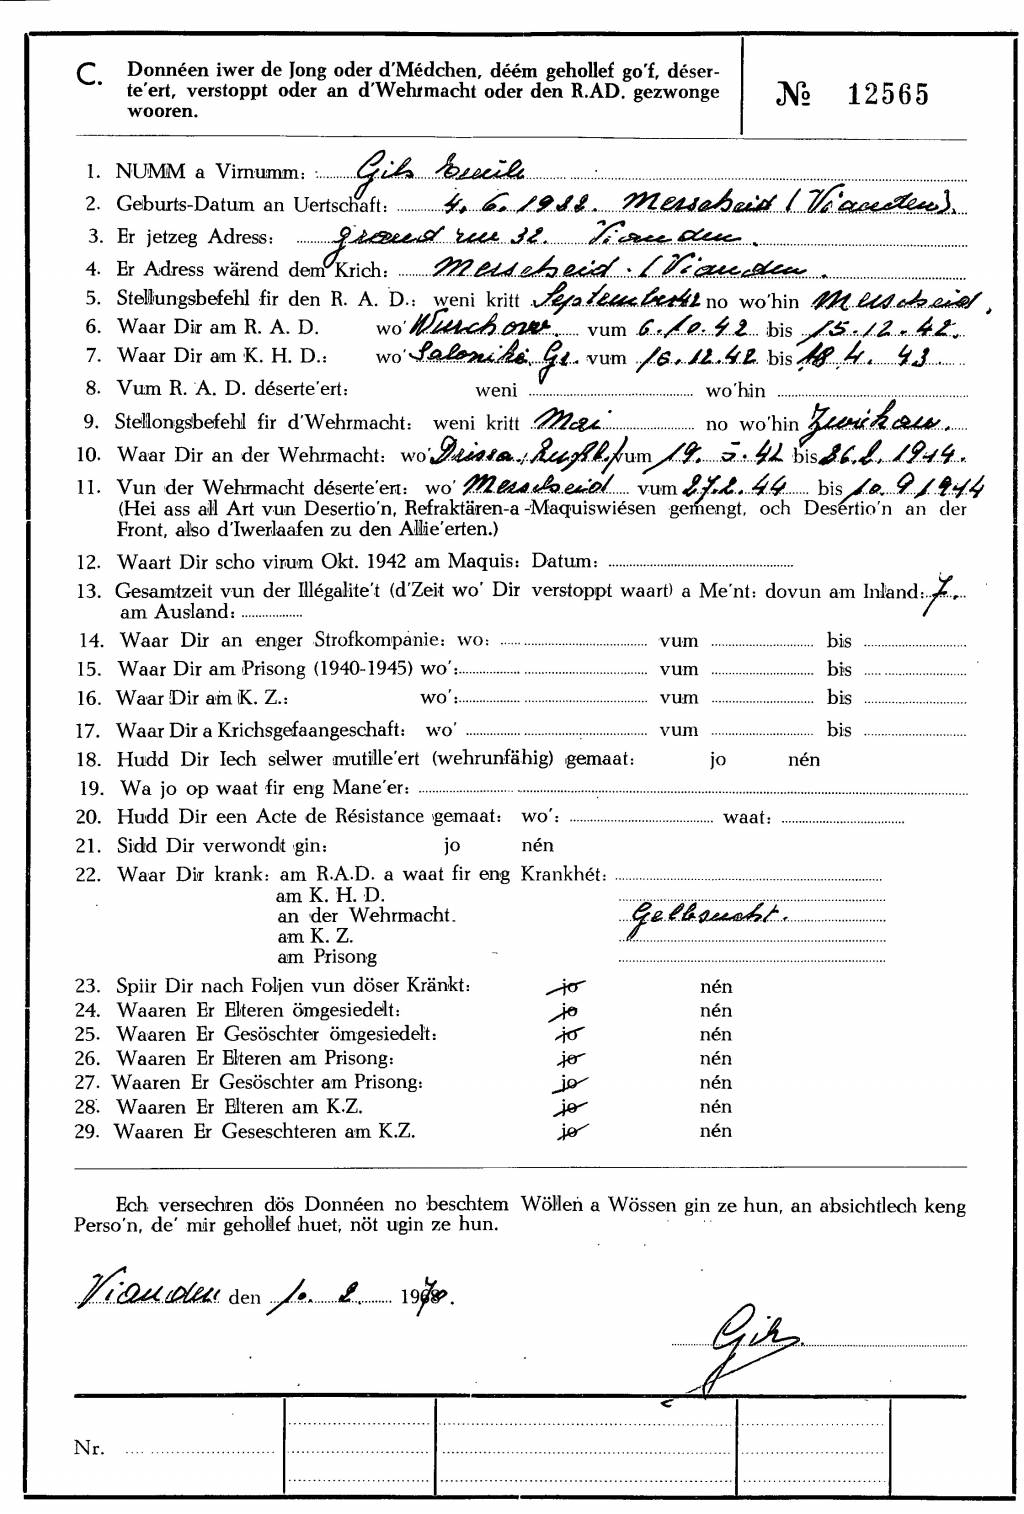 C. Donnéen iwer de Jong oder d'Médchen, déém gehollef go'f, déser-
te'ert, verstoppt oder an d'Wehrmacht oder den R.AD. gezwonge
wooren.
№ 12565
1. NUMM a Virnumm: Gils Emile
2. Geburts-Datum an Uertschaft: 4. 6. 1922. Merscheid (Vianden).
3. Er jetzeg Adress: grand rue 32. Vianden.
4. Er Adress wärend dem Krich: Merscheid. (Vianden.
5. Stellungsbefehl fir den R. A. D.: weni kritt September 42 no wo'hin Merscheid,
6. Waar Dir am R. A. D. wo' vum 6.10.42 bis 15.12.42.
7. Waar Dir am K. H. D.: wo' Saloniki Gr. vum 16.12.42 bis 18 4. 43
8. Vum R. A. D. déserte'ert: weni wo'hin
9. Stellongsbefehl fir d'Wehrmacht: weni kritt Mai no wo'hin Zwickau.
10. Waar Dir an der Wehrmacht: wo' Drissa, Rußl. vum 19. 5. 42 bis 26.2.1944.
11. Vun der Wehrmacht déserte'ert: wo' Merscheid vum 27.2.44 bis 10.9 1944
(Hei ass all Art vun Desertio'n, Refraktären-a -Maquiswiésen gemengt, och Desertio'n an der
Front, also d'Iwerlaafen zu den Allie'erten.)
12. Waart Dir scho virum Okt. 1942 am Maquis: Datum:
13. Gesamtzeit vun der Illégalite't (d'Zeit wo' Dir verstoppt waart) a Me'nt: dovun am Inland: 7.
am Ausland:
14. Waar Dir an enger Strofkompanie: wo: vum bis
15. Waar Dir am Prisong (1940-1945) wo': vum bis
16. Waar Dir am K. Z.: wo': vum bis
17. Waar Dir a Krichsgefaangeschaft: wo' vum bis
18. Hudd Dir Iech selwer mutille'ert (wehrunfähig) gemaat: jo nén
19. Wa jo op waat fir eng Mane'er:
20. Hudd Dir een Acte de Résistance gemaat: wo': waat:
21. Sidd Dir verwondt gin: jo nén
22. Waar Dir krank: am R.A.D. a waat fir eng Krankhét:
am K. H. D.
an der Wehrmacht. Gelbsucht.
am K. Z.
am Prisong
23. Spiir Dir nach Foljen vun döser Kränkt: jo nén
24. Waaren Er Elteren ömgesiedelt: jo nén
25. Waaren Er Gesöschter ömgesiedelt: jo nén
26. Waaren Er Elteren am Prisong: jo nén
27. Waaren Er Gesöschter am Prisong: jo nén
28. Waaren Er Elteren am K.Z. jo nén
29. Waaren Er Geseschteren am K.Z. jo nén
Ech versechren dös Donnéen no beschtem Wöllen a Wössen gin ze hun, an absichtlech keng
Perso'n, de' mir gehollef huet, nöt ugin ze hun.
Vianden den 10. 2. 1970.
Gils
Nr.